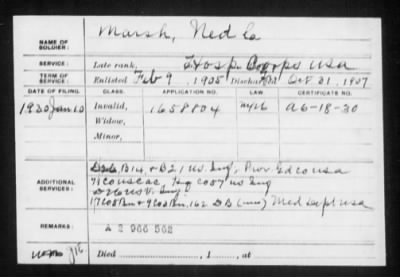 Marsh, Ned C
NAME OF SOLDIER:
SERVICE: Late rank, Hosp Corps USA
TERM OF SERVICE: Enlisted Feb 9, 1905 Discharged Oct 31, 1907
DATE OF FILING. CLASS. APPLICATION NO. LAW. CERTIFICATE NO.
1920 Jan 10 Invalid, 1658804 A6-18-30
Widow,
Minor,
ADDITIONAL SERVICES: B14 & B21 US Inf, Prov. Gd co USA
Hq Co 57 US Inf
D26 US V. Inf
162 D B Med Dept USA
REMARKS: A 2 966 562
Died , 1 , at